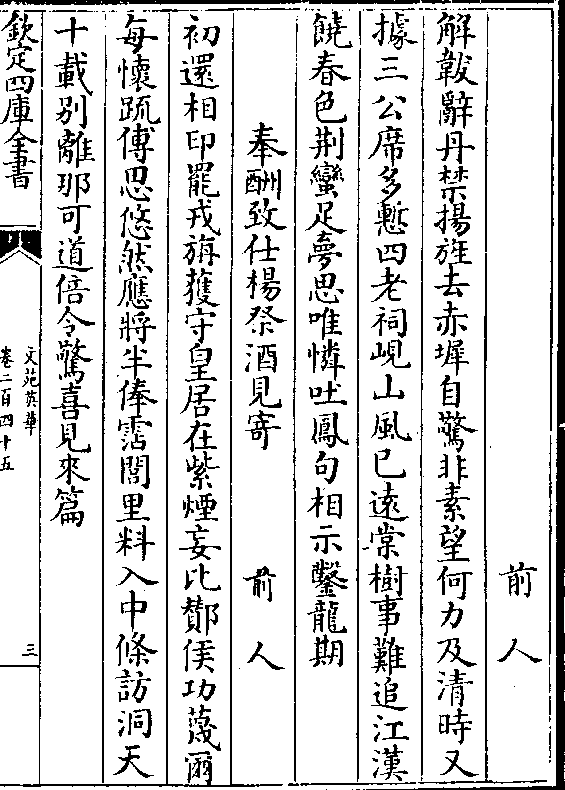 前人
解韍辭丹禁揚旌去赤墀自驚非素望何力及清時又
據三公席多慙四老祠峴山風已遠棠樹事難追江漢
饒春色荆蠻足夢思唯憐吐鳳句相示鑿龍期
奉酬致仕楊祭酒見寄　前人
初還相印罷戎旃獲守皇居在紫煙妄比酇侯功蔑爾
每懷疏傅思悠然應將半俸霑閭里料入中條訪洞天
十載别離那可道倍令驚喜見來篇
欽定四庫全書
文苑英華
卷二百四十五
三